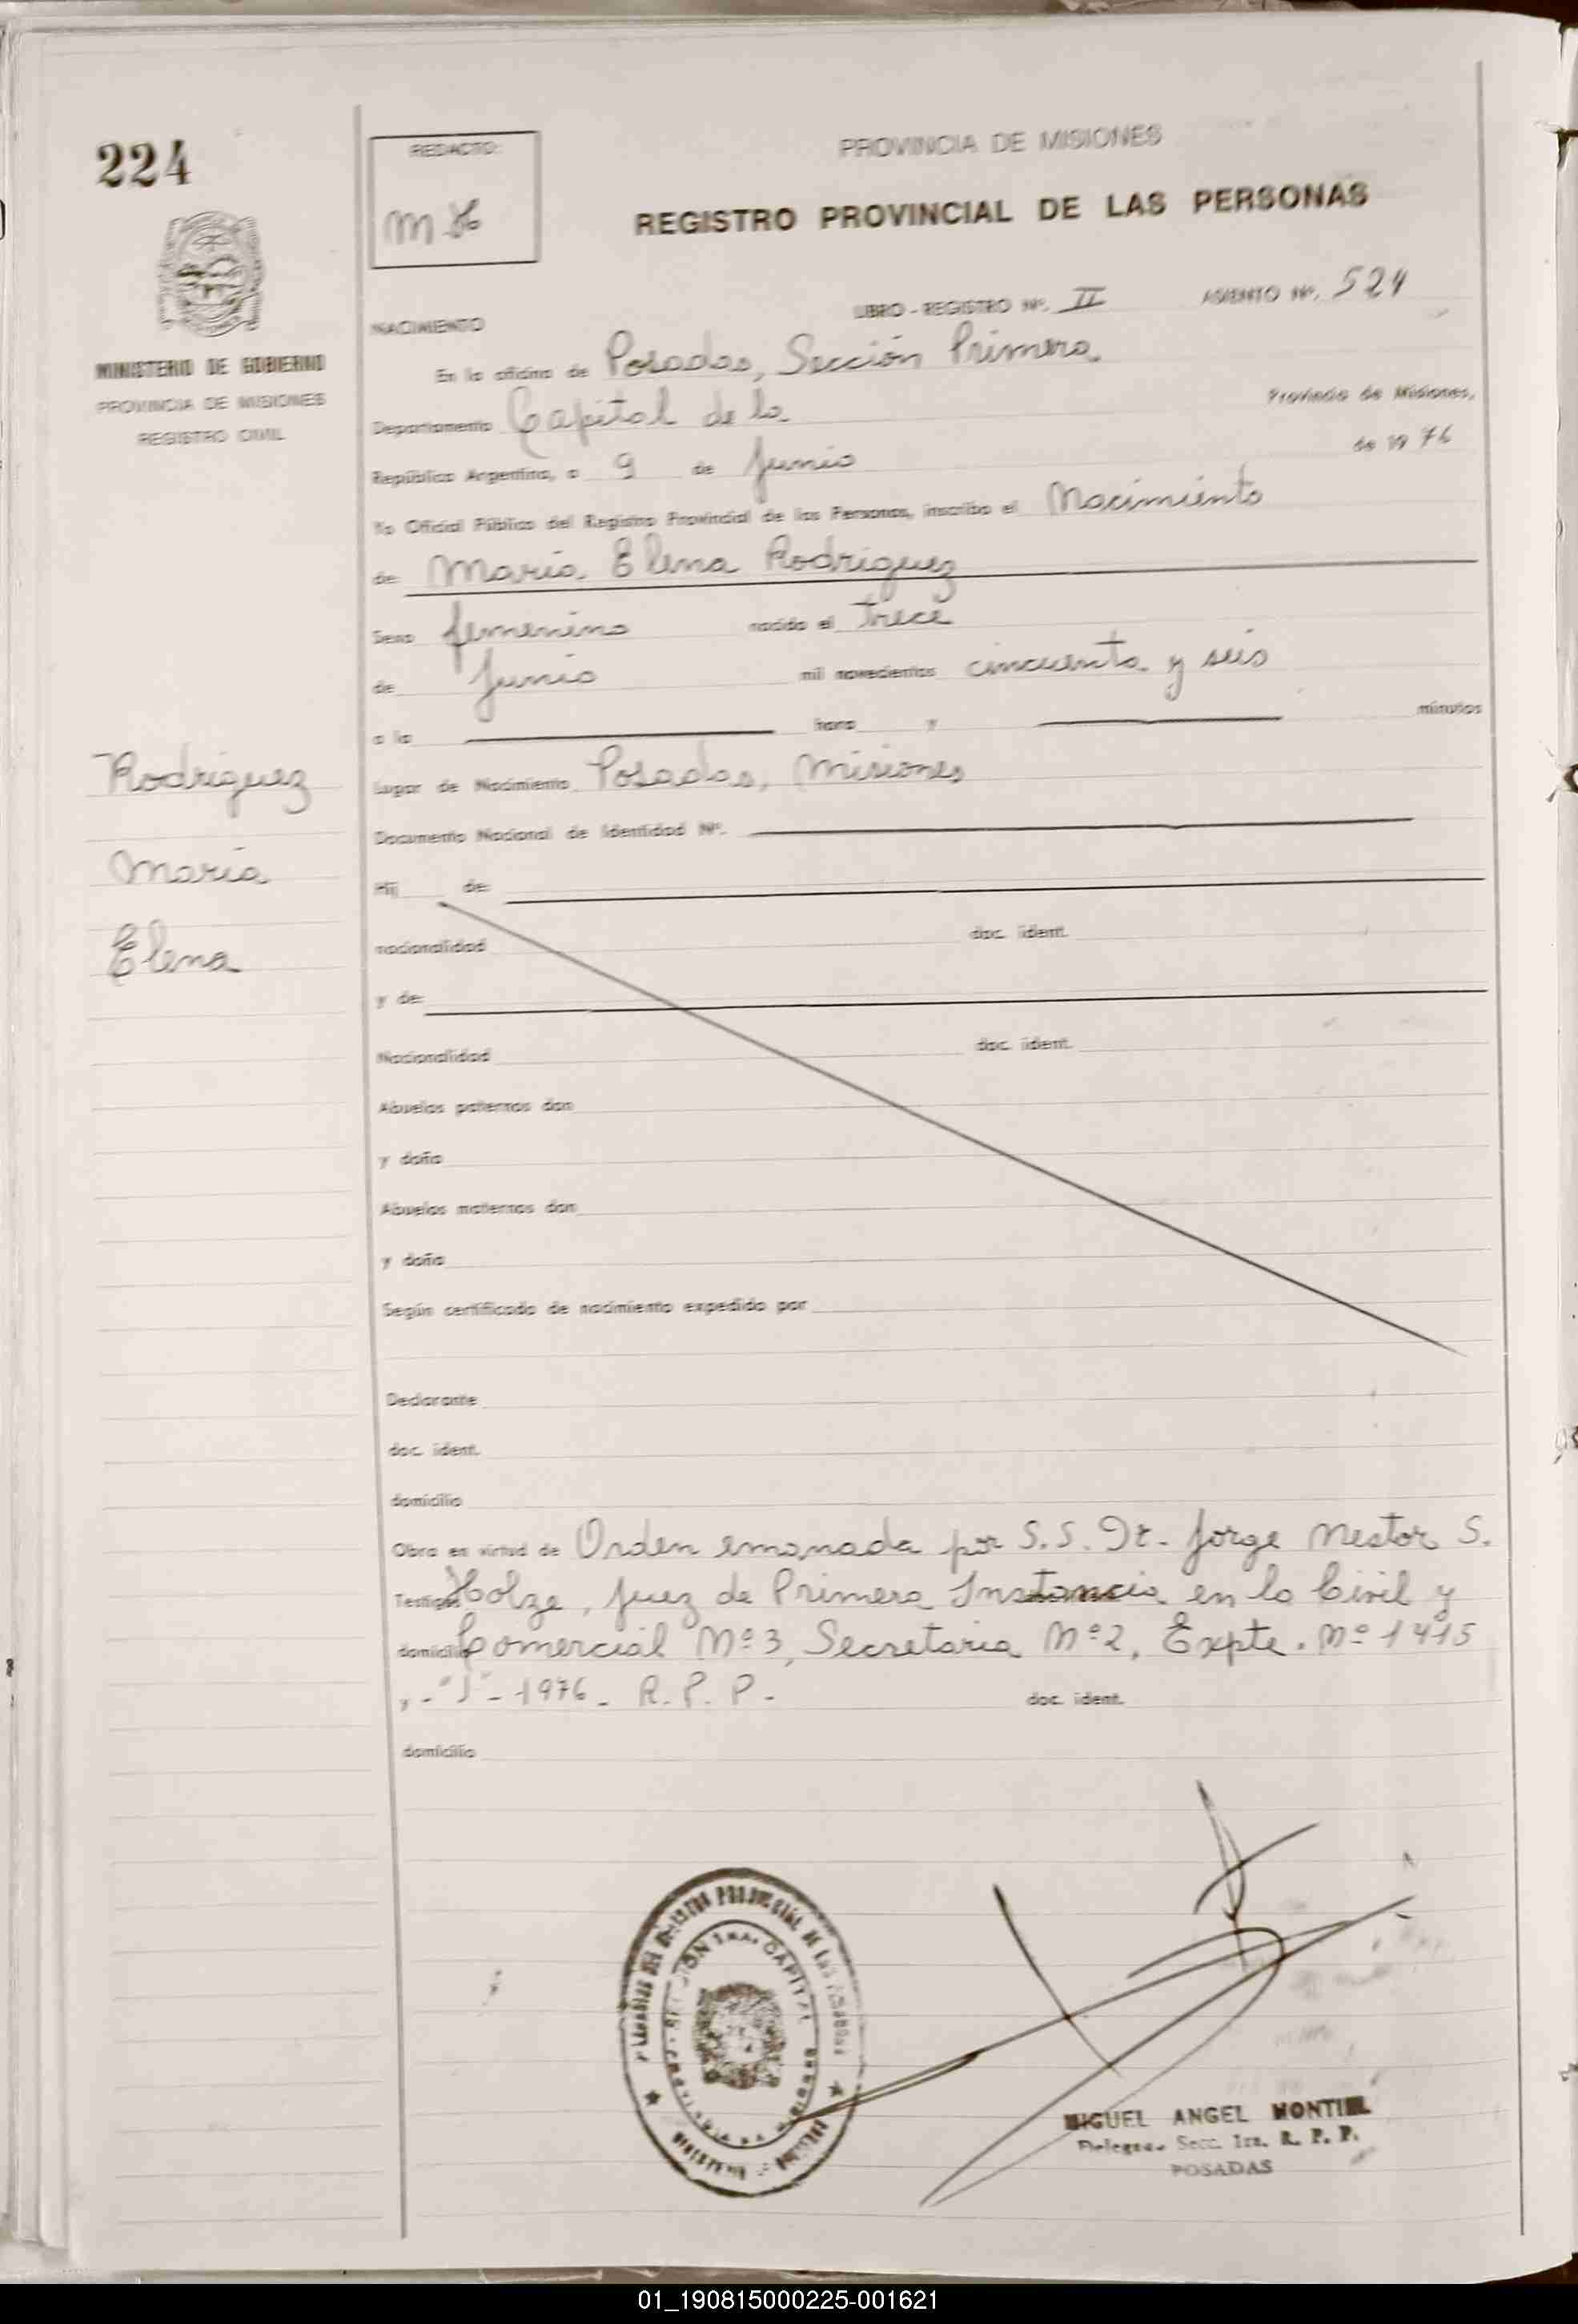 224
REDACTO:
PROVINCIA DE MISIONES
REGISTRO PROVINCIAL DE LAS PERSONAS
LIBRO - REGISTRO Nº. II ASIENTO Nº. 524
MINISTERIO DE GOBIERNO
PROVINCIA DE MISIONES
REGISTRO CIVIL
NACIMIENTO
En la oficina de Posadas, Sección Primera
Departamento Capital de la Provincia de Misiones,
República Argentina, a 9 de Junio de 19 76
Yo Oficial Público del Registro Provincial de las Personas, inscribo el Nacimiento
de: María Elena Rodriguez
Sexo femenino nacido el trece
de Junio mil novecientos cincuenta y seis
a la hora y minutos
Lugar de Nacimiento Posadas, Misiones
Documento Nacional de Identidad Nº.
Rodriguez
María
Elena
Hij de:
nacionalidad doc. ident.
y de:
Nacionalidad doc. ident.
Abuelos paternos don
y doña
Abuelos maternos don
y doña
Según certificado de nacimiento expedido por
Declarante
doc. ident.
domicilio
Obra en virtud de Orden emanada por S.S. Dr. Jorge Nestor S.
Testigos Holze, Juez de Primera Instancia en lo Civil y
domicilio Comercial Nº 3, Secretaria Nº 2, Expte. Nº 1415
y -"J"- 1976 - R. P. P. - doc. ident.
domicilio
MIGUEL ANGEL MONTIEL
Secc. 1ra. R. P. P.
POSADAS
01_190815000225-001621